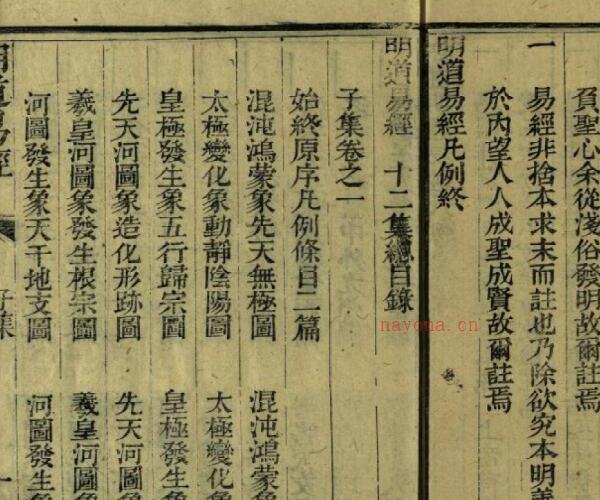 負聖心余從淺俗發明故爾註焉
一 易經非捨本求末而註也乃除欲究本明義
於內望人人成聖成賢故爾註焉
明道易經凡例終
明道易經 十二集總目錄
子集卷之一
始終原序凡例條目二篇
混沌鴻蒙象先天無極圖 混沌鴻蒙象
太極變化象動靜陰陽圖 太極變化象
皇極發生象五行歸宗圖 皇極發生象
先天河圖象造化形跡圖 先天河圖象
羲皇河圖象發生根宗圖 羲皇河圖象
河圖發生象天干地支圖 河圖發生象
明道易經 子集 一
nayona.cn